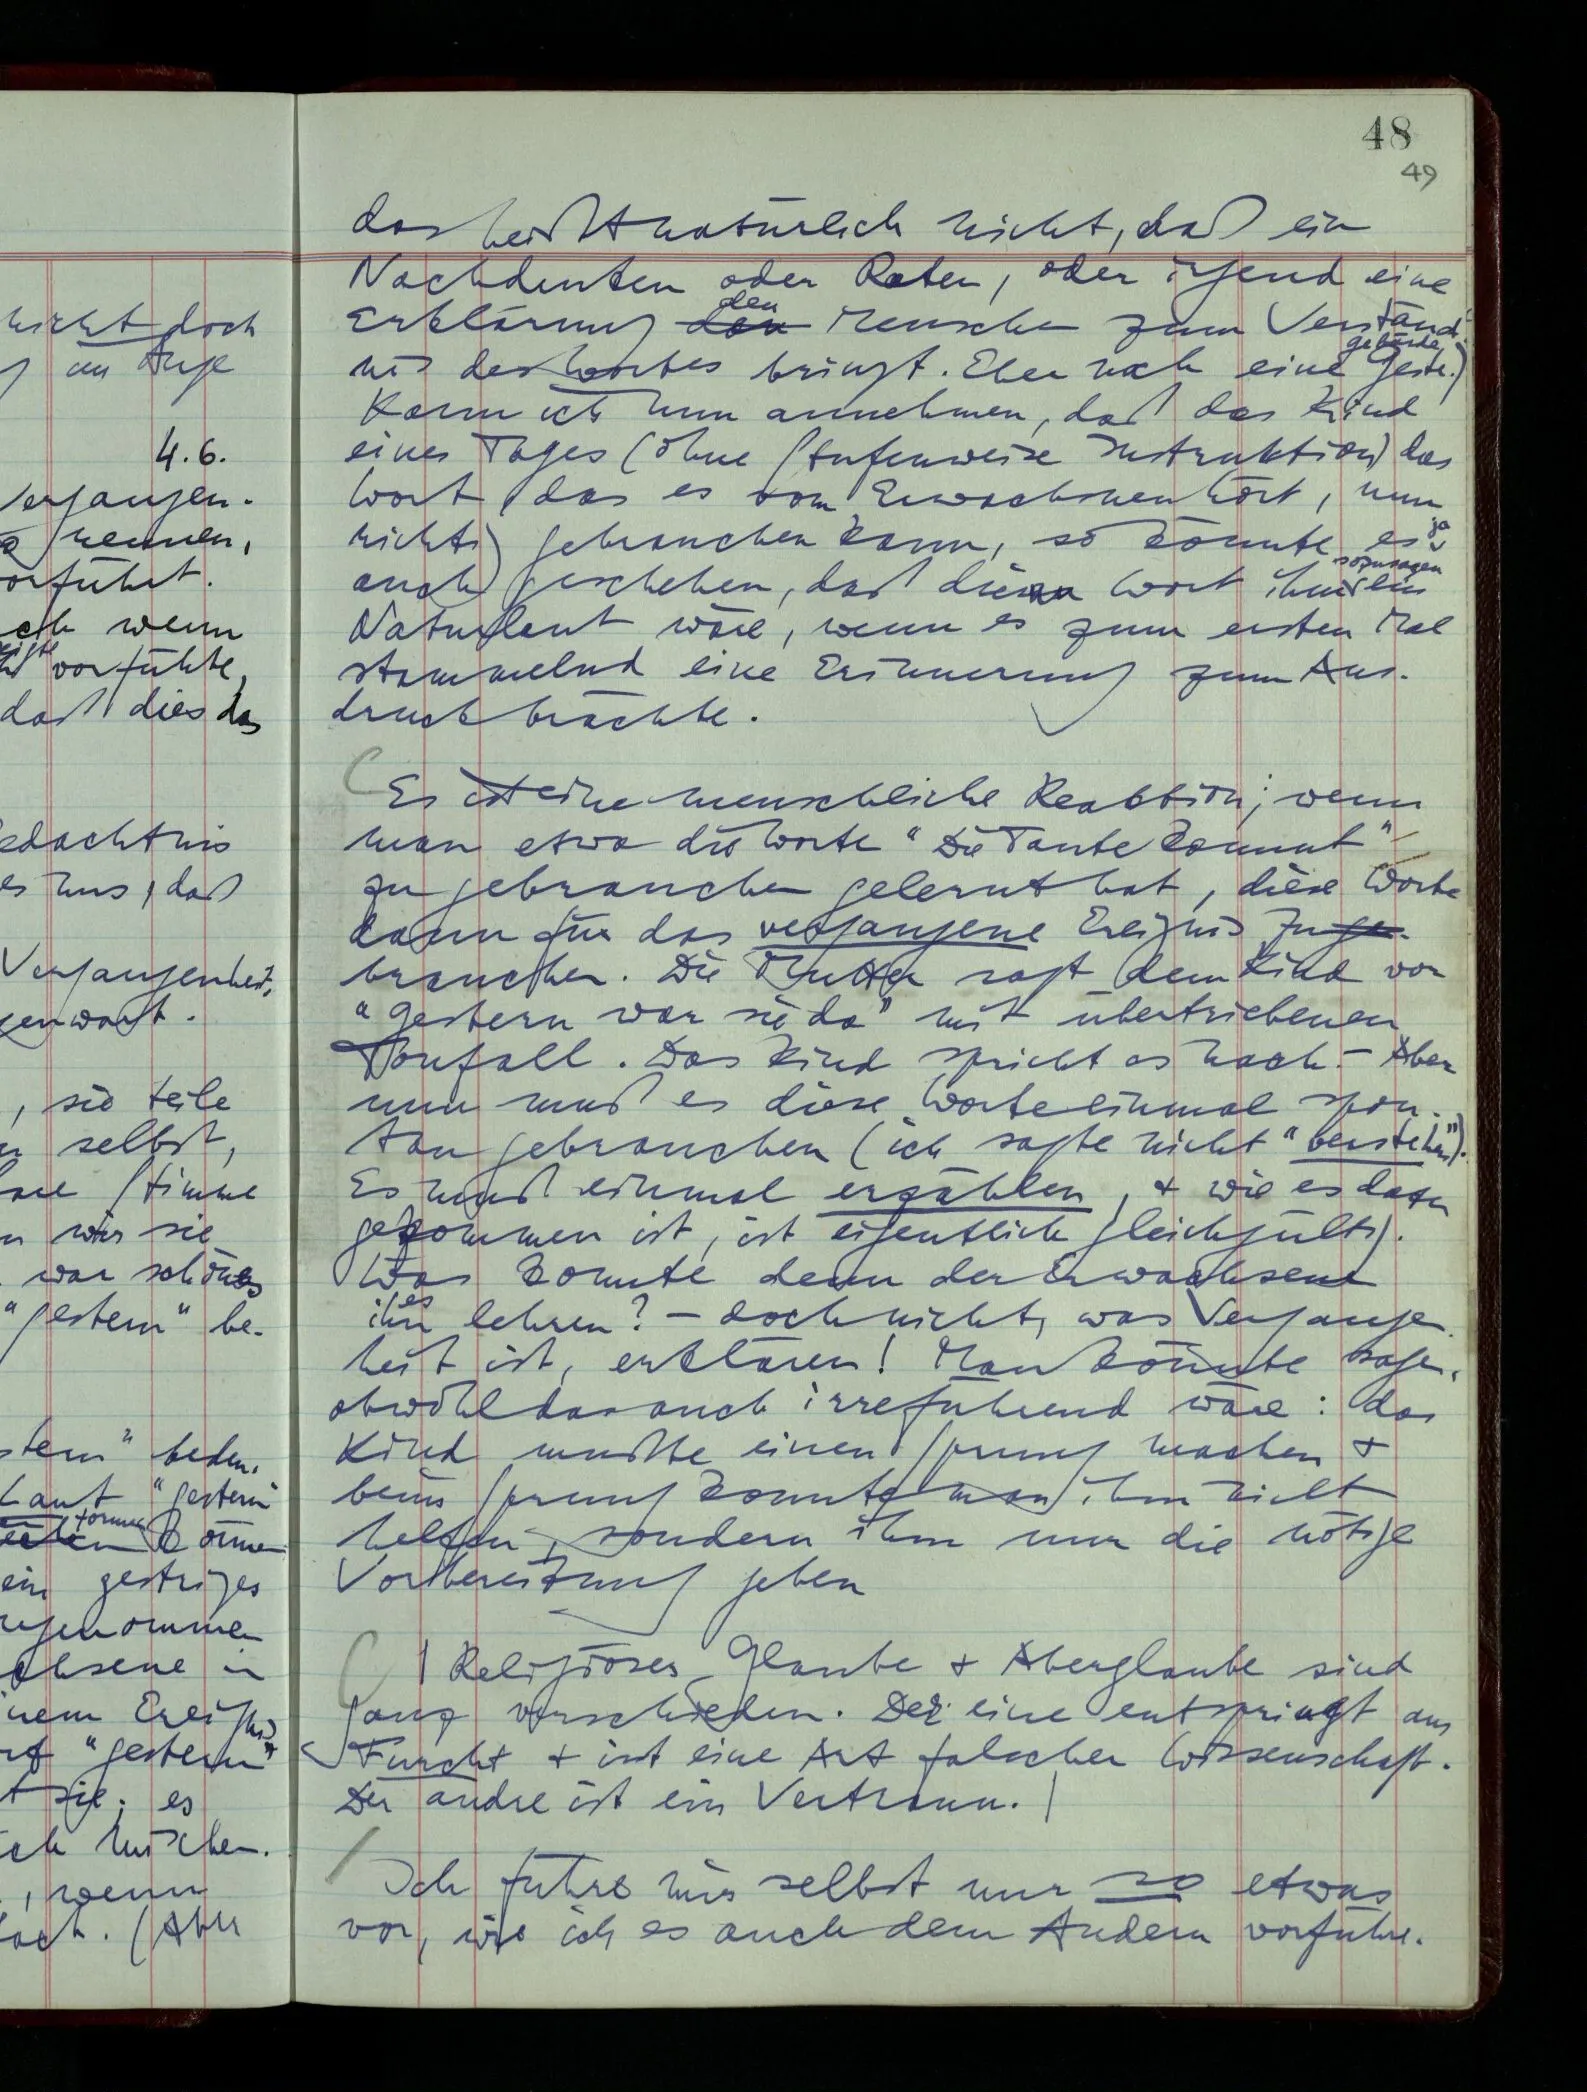 48
49
das heißt natürlich nicht, daß ein
Nachdenken oder Raten, oder irgend eine
Erklärung den den Menschen zum Verständ-
nis des Wortes bringt. Eher noch eine Geste.) Gebärde
Kann ich nun annehmen, daß das Kind
eines Tages (ohne stufenweise Instruktion) das
Wort, das es vom Erwachsenen hört, nun
richtig gebrauchen kann, so könnte es ja
auch geschehen, daß dieses Wort ihm sozusagen ein
Naturlaut wäre, wenn es zum ersten Mal
stammelnd eine Erinnerung zum Aus-
druck brächte.
Es ist eine menschliche Reaktion; wenn
man etwa die Worte "Die Tante kommt"
zu gebrauchen gelernt hat, diese Worte
dann für das vergangene Ereignis zu ge-
brauchen. Die Mutter sagt dem Kind vor
"gestern war sie da" mit übertriebenen
Tonfall. Das Kind spricht es nach. – Aber
nun muß es diese Worte einmal spon-
tan gebrauchen (ich sagte nicht "verstehen").
Es muß einmal erzählen, & wie es dazu
gekommen ist, ist eigentlich gleichgültig.
Was konnte denn der Erwachsene
es ihn lehren? – doch nicht, was Vergangen-
heit ist, erklären! Man könnte sagen,
obwohl das auch irreführend wäre: das
Kind mußte einen Sprung machen &
beim Sprung konnte man ihm nicht
helfen, sondern ihm nur die nötige
Vorbereitung geben
| Religiöser Glaube & Aberglaube sind
ganz verschieden. Der eine entspringt aus
Furcht & ist eine Art falscher Wissenschaft.
Der andre ist ein Vertraun. |
Ich führe mir selbst nur so etwas
vor, wie ich es auch dem Andern vorführe.
nicht doch
im Auge
4.6.
Vergangen-
nennen,
vorführt.
wenn
vorführte,
daß dies das
Gedächtnis
es uns, daß
Vergangenheit,
Gegenwart.
, sie teile
selbst,
Stimme
wir sie
war schönes
"gestern" be-
bedeu-
Laut "gestern"
formen können
ein gestriges
in
einem Ereignis
"gestern"
sie; es
mischen.
, wenn
(Aber